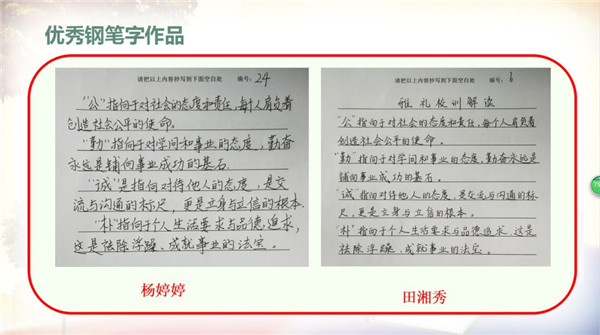 优秀钢笔字作品
请把以上内容抄写到下面空白处 编号: 24
“公”指向于对社会的态度和责任,每个人肩负着
创造社会公平的使命。
“勤”指向于对学问和事业的态度,勤奋
永远是铺向事业成功的基石。
“诚”是指向对待他人的态度,是交
流与沟通的标尺,更是立身与立信的根本.
“朴”指向于个人生活要求与品德追求,
这是祛除浮躁、成就事业的法宝。
杨婷婷
请把以上内容抄写到下面空白处 编号: 6
雅礼校训解读
“公”指向于对社会的态度和责任,每个人肩负着
创造社会公平的使命。
“勤”指向于对学问和事业的态度,勤奋永远是
铺向事业成功的基石。
“诚”指向对待他人的态度,是交流与沟通的标
尺,更是立身与立信的根本。
“朴”指向于个人生活要求与品德追求,这是
祛除浮躁、成就事业的法宝。
田湘秀